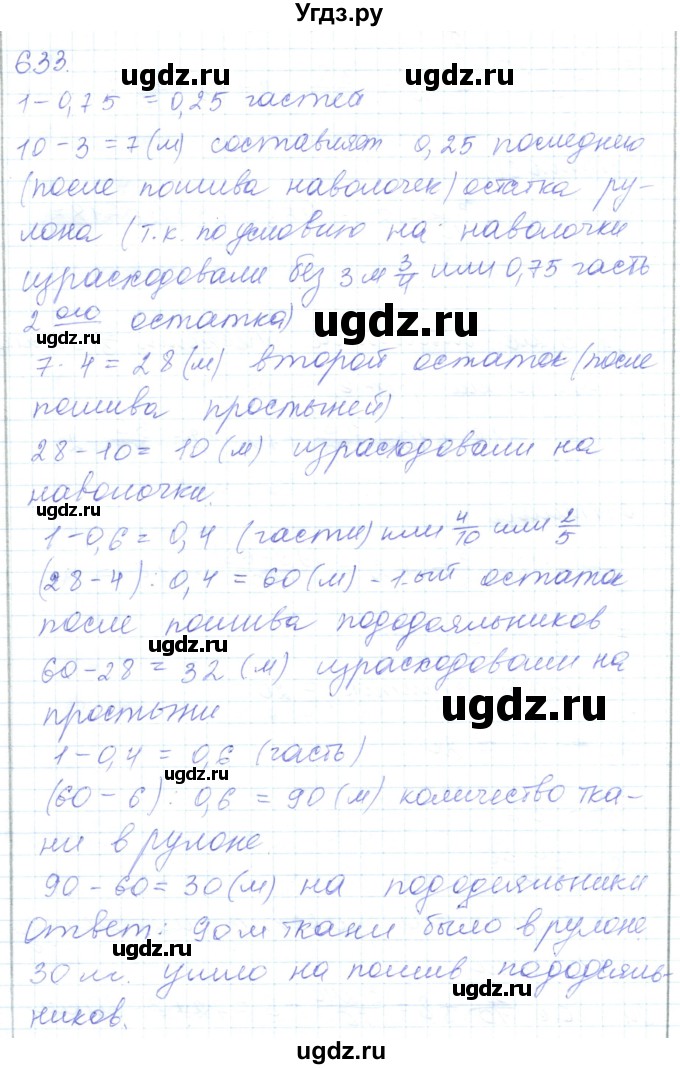 Угдз.ру
633.
1-0,75 = 0,25 частей
10-3=7(м) составляет 0,25 последнего
(после пошива наволочек) остатка ру-
лона (т.к. по условию на наволочки
израсходовали без 3м 3/4 или 0,75 часть
2 ого остатка)
7·4=28(м) второй остаток (после
пошива простыней)
28-10= 10(м) израсходовали на
наволочки.
1-0,6=0,4 (части) или 4/10 или 2/5
(28-4):0,4=60(м)-1-ый остаток
после пошива пододеяльников
60-28=32(м) израсходовали на
простыни
1-0,4=0,6 (часть)
(60-6):0,6=90(м) количество тка-
ни в рулоне.
90-60=30(м) на пододеяльники
Ответ: 90м ткани было в рулоне.
30м. ушло на пошив пододеяль-
ников.
ugdz.ru
ugdz.ru
ugdz.ru
ugdz.ru
ugdz.ru
ugdz.ru
ugdz.ru
ugdz.ru
ugdz.ru
ugdz.ru
ugdz.ru
ugdz.ru